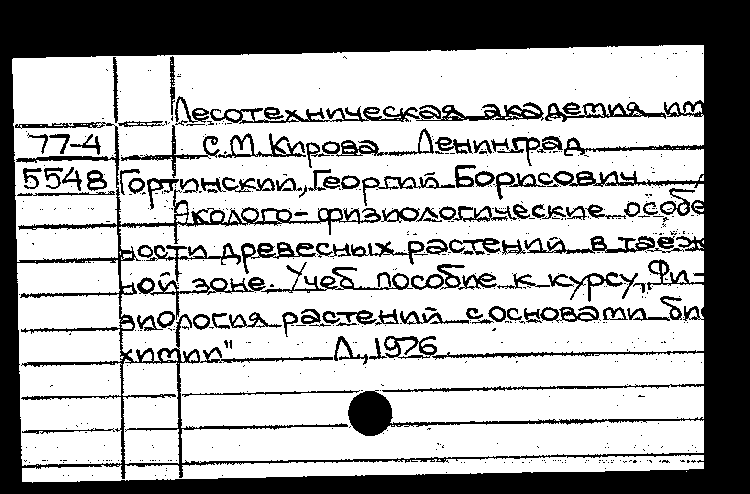 Лесотехническая академия им
77-4 С.М. Кирова Ленинград
5548 Гортинский, Георгий Борисович
Эколого-физиологические особе
ности древесных растений в таеж
ной зоне. Учеб пособие к курсу „Фи-
зиология растений с основами био
химии" Л., 1976